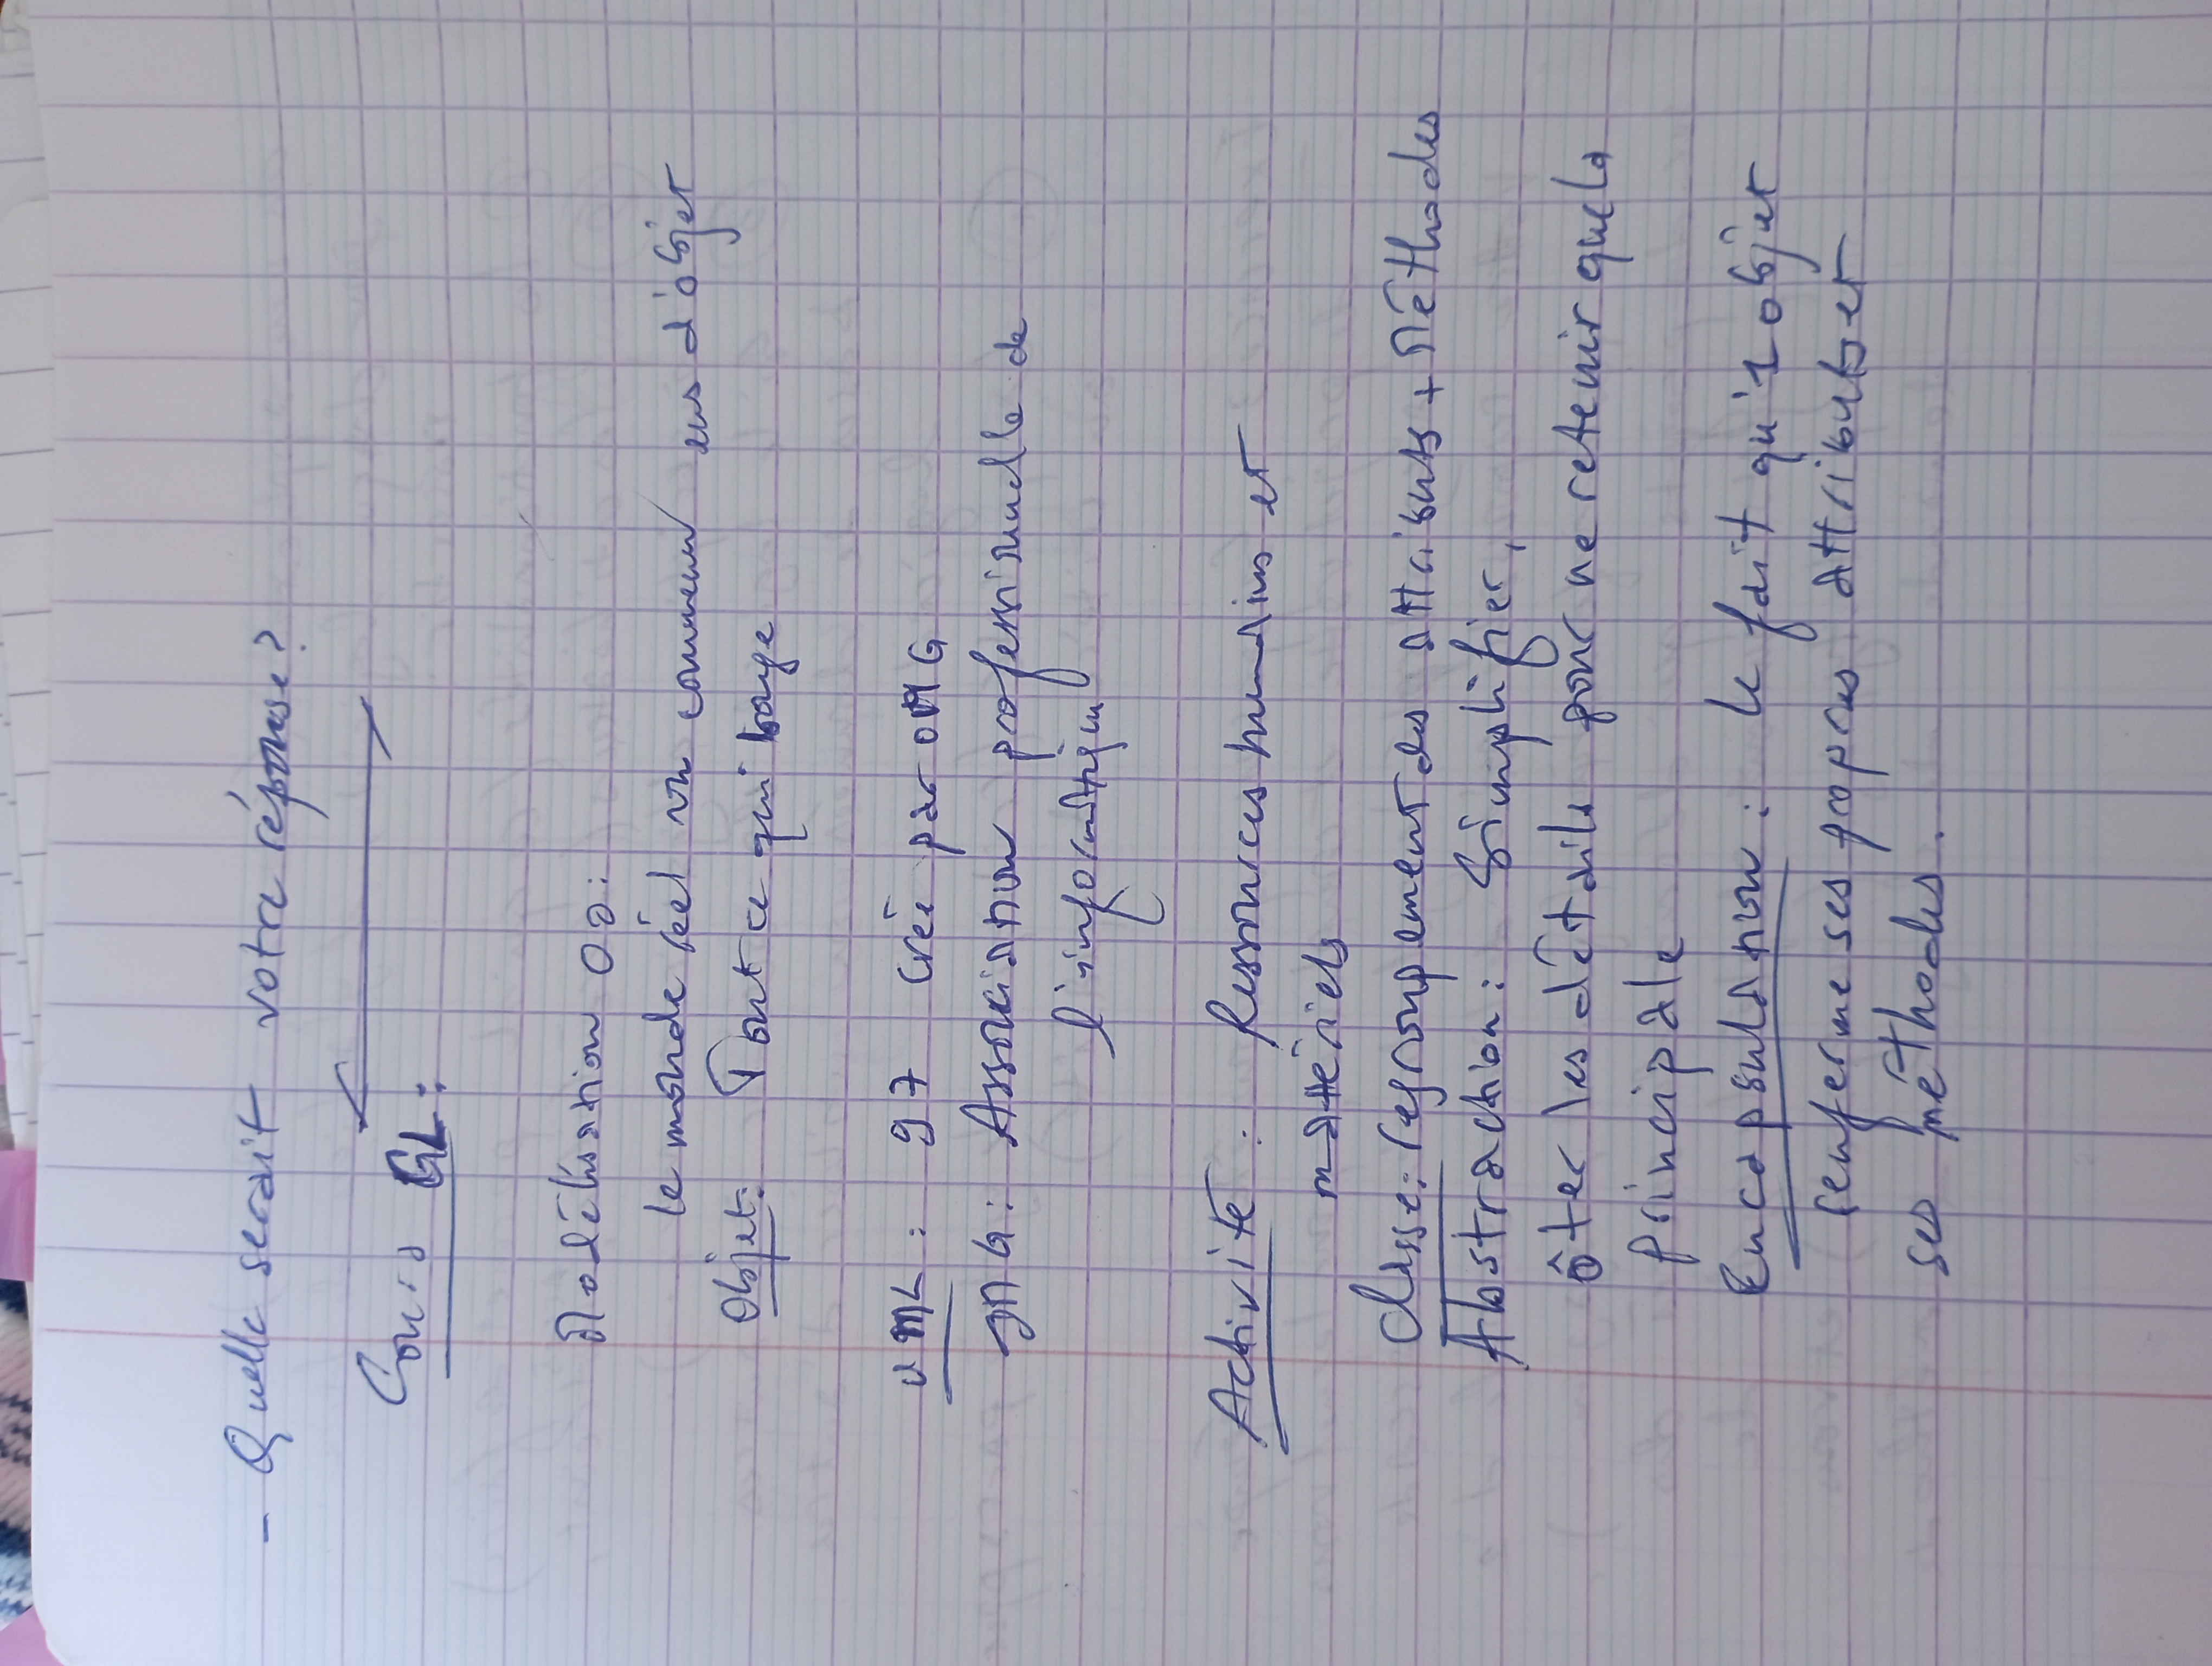 - Quelle serait votre réponse?
Cours GL:
Modélisation OO:
le monde réel vu comme un ens d'objet
Objet: Tout ce qui bouge
UML: 97 créé par OMG
OMG: Association professionnelle de
l'informatique
Activité: Ressources humains et
matériels
Classe: regroupement des attributs + Méthodes
Abstraction: Simplifier,
ôter les détails pour ne retenir que la
principale
Encapsulation: le fait qu'1 objet
renferme ses propres attributs et
ses méthodes.